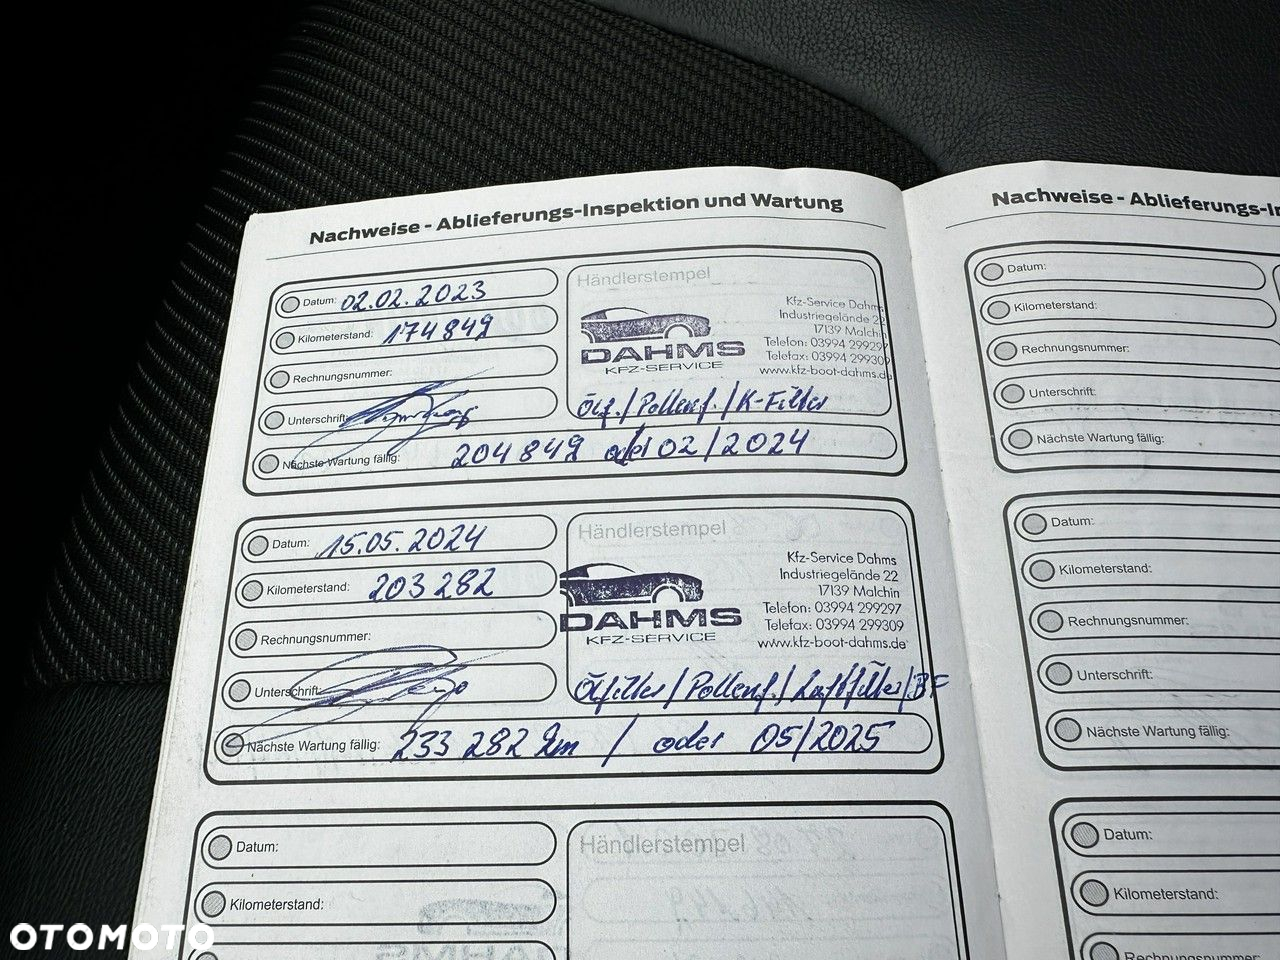 Nachweise - Ablieferungs-Inspektion und Wartung
Datum: 02.02.2023
Kilometerstand: 174849
Rechnungsnummer:
Unterschrift:
Nächste Wartung fällig: 204849 oder 02/2024
Händlerstempel
Kfz-Service Dahms
Industriegelände 22
17139 Malchin
Telefon: 03994 299297
Telefax: 03994 299309
www.kfz-boot-dahms.de
DAHMS
KFZ-SERVICE
Ölf./Pollenf./K-Filter
Datum: 15.05.2024
Kilometerstand: 203 282
Rechnungsnummer:
Unterschrift:
Nächste Wartung fällig: 233 282 km / oder 05/2025
Händlerstempel
Kfz-Service Dahms
Industriegelände 22
17139 Malchin
Telefon: 03994 299297
Telefax: 03994 299309
www.kfz-boot-dahms.de
DAHMS
KFZ-SERVICE
Ölfilter/Pollenf./Luftfilter/BF
Datum:
Kilometerstand:
Händlerstempel
Nachweise - Ablieferungs-In
Datum:
Kilometerstand:
Rechnungsnummer:
Unterschrift:
Nächste Wartung fällig:
Datum:
Kilometerstand:
Rechnungsnummer:
Unterschrift:
Nächste Wartung fällig:
Datum:
Kilometerstand:
Rechnungsnummer:
OTOMOTO